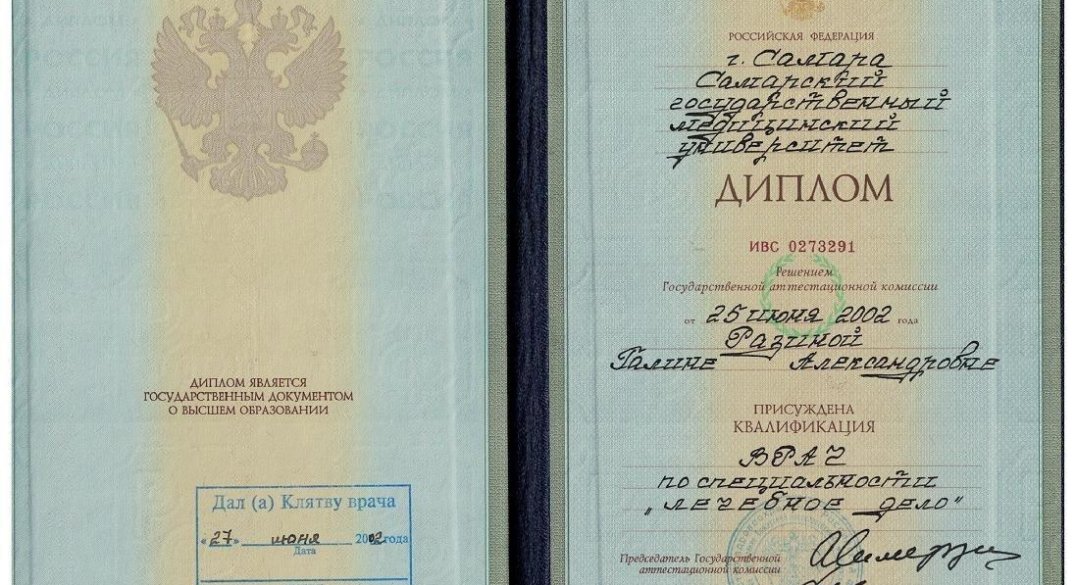 ДИПЛОМ ЯВЛЯЕТСЯ
ГОСУДАРСТВЕННЫМ ДОКУМЕНТОМ
О ВЫСШЕМ ОБРАЗОВАНИИ
Дал (а) Клятву врача
«27» июня 2002 года
Дата
РОССИЙСКАЯ ФЕДЕРАЦИЯ
г. Самара
Самарский
государственный
медицинский
университет
ДИПЛОМ
ИВС 0273291
Решением
Государственной аттестационной комиссии
от 25 июня 2002 года
Разиной
Галине Александровне
ПРИСУЖДЕНА
КВАЛИФИКАЦИЯ
ВРАЧ
по специальности
„лечебное дело"
Председатель Государственной
аттестационной комиссии